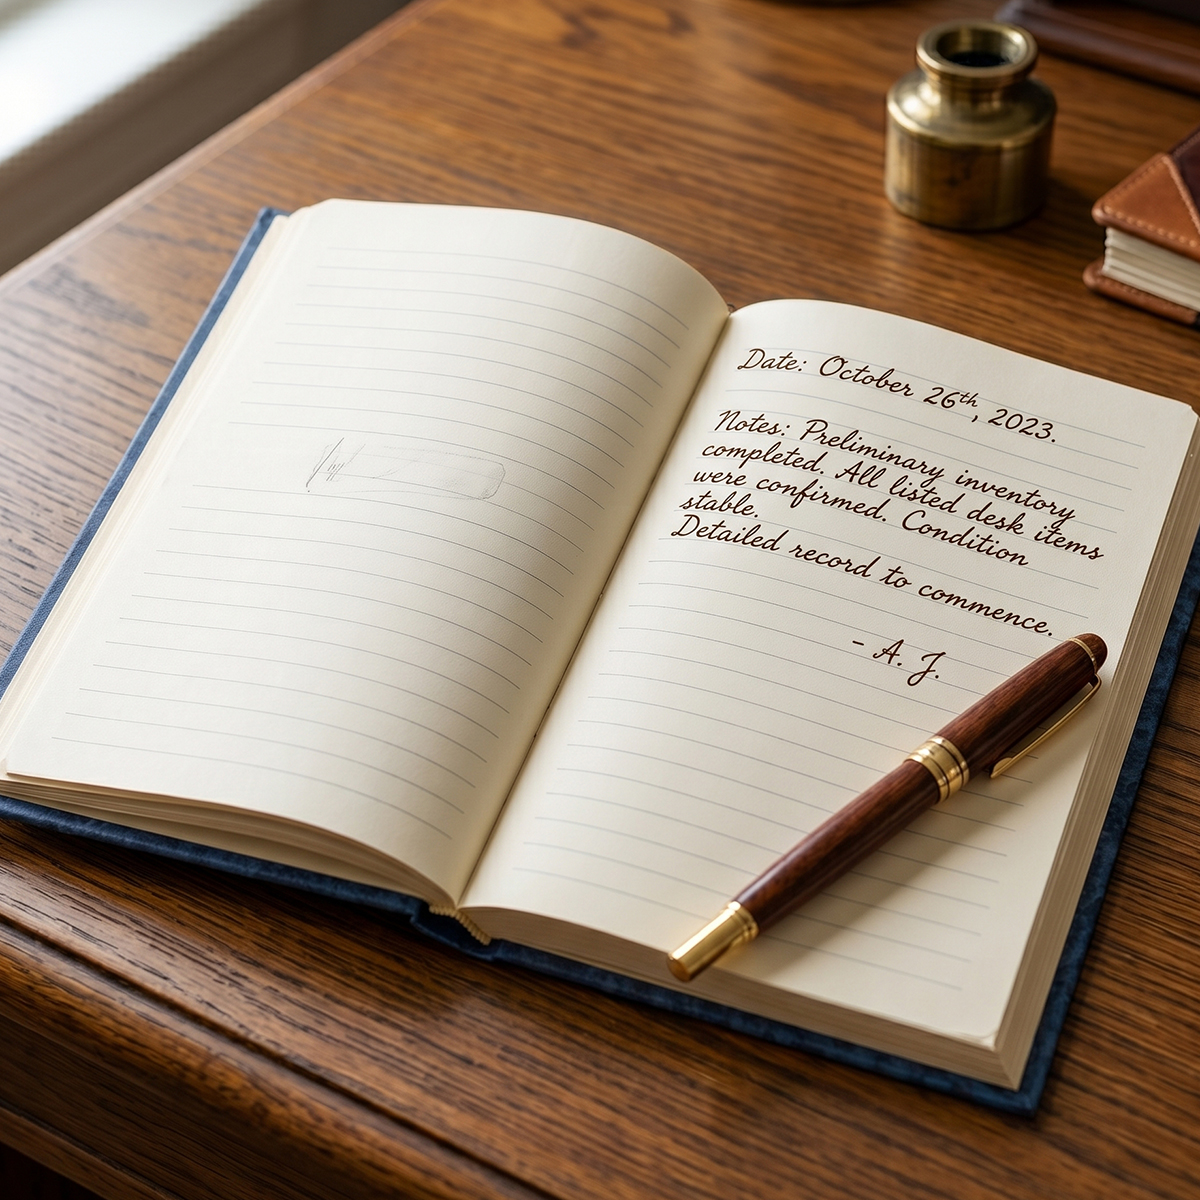 Date: October 26th, 2023.
Notes: Preliminary inventory
completed. All listed desk items
were confirmed. Condition
stable.
Detailed record to commence.
- A. J.